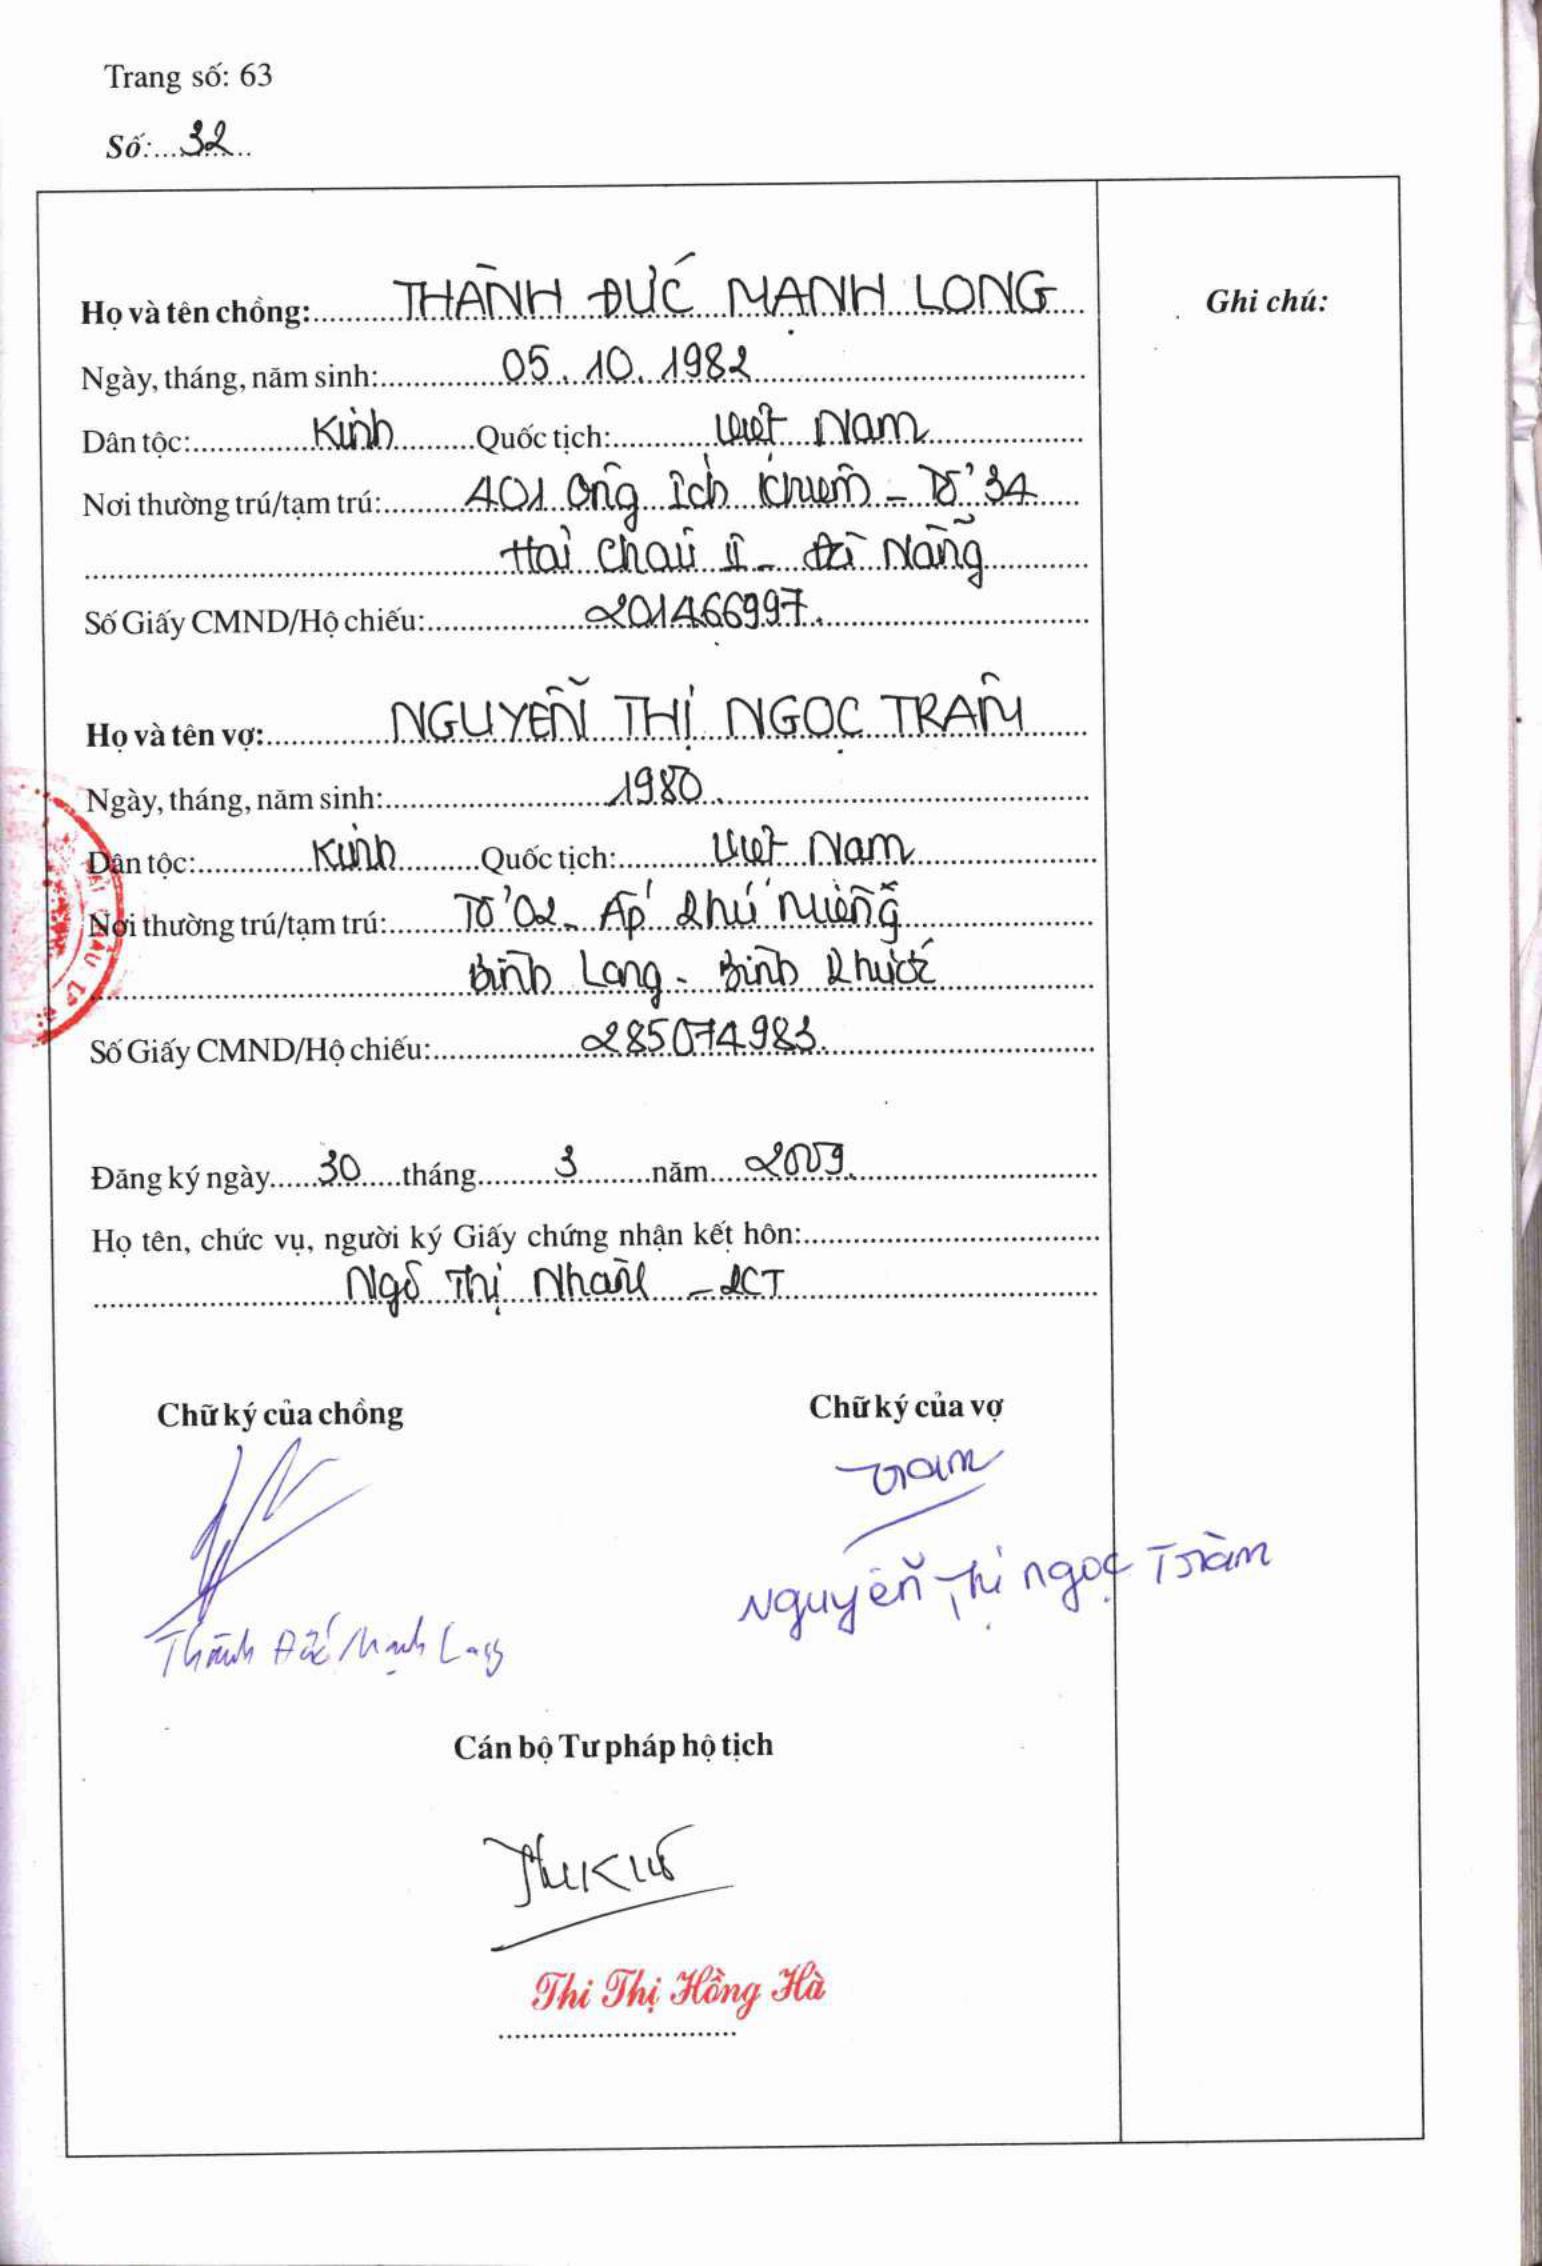 Trang số: 63
Số: 32
Họ và tên chồng: THÀNH ĐỨC MẠNH LONG
Ghi chú:
Ngày, tháng, năm sinh: 05.10.1982
Dân tộc: Kinh Quốc tịch: Việt Nam
Nơi thường trú/tạm trú: 401 Ông Ích Khiêm - Tổ 34
Hải Châu II - Đà Nẵng
Số Giấy CMND/Hộ chiếu: 201466997
Họ và tên vợ: NGUYỄN THỊ NGỌC TRÂM
Ngày, tháng, năm sinh: 1980
Dân tộc: Kinh Quốc tịch: Việt Nam
Nơi thường trú/tạm trú: Tổ 02 - Ấp Phú Miêng
Bình Long - Bình Phước
Số Giấy CMND/Hộ chiếu: 285074983
Đăng ký ngày 30 tháng 3 năm 2009
Họ tên, chức vụ, người ký Giấy chứng nhận kết hôn:
Ngô Thị Nhạn - PCT
Chữ ký của chồng
Chữ ký của vợ
Trâm
Nguyễn Thị Ngọc Trâm
Thành Đức Mạnh Long
Cán bộ Tư pháp hộ tịch
Thi Thị Hồng Hà